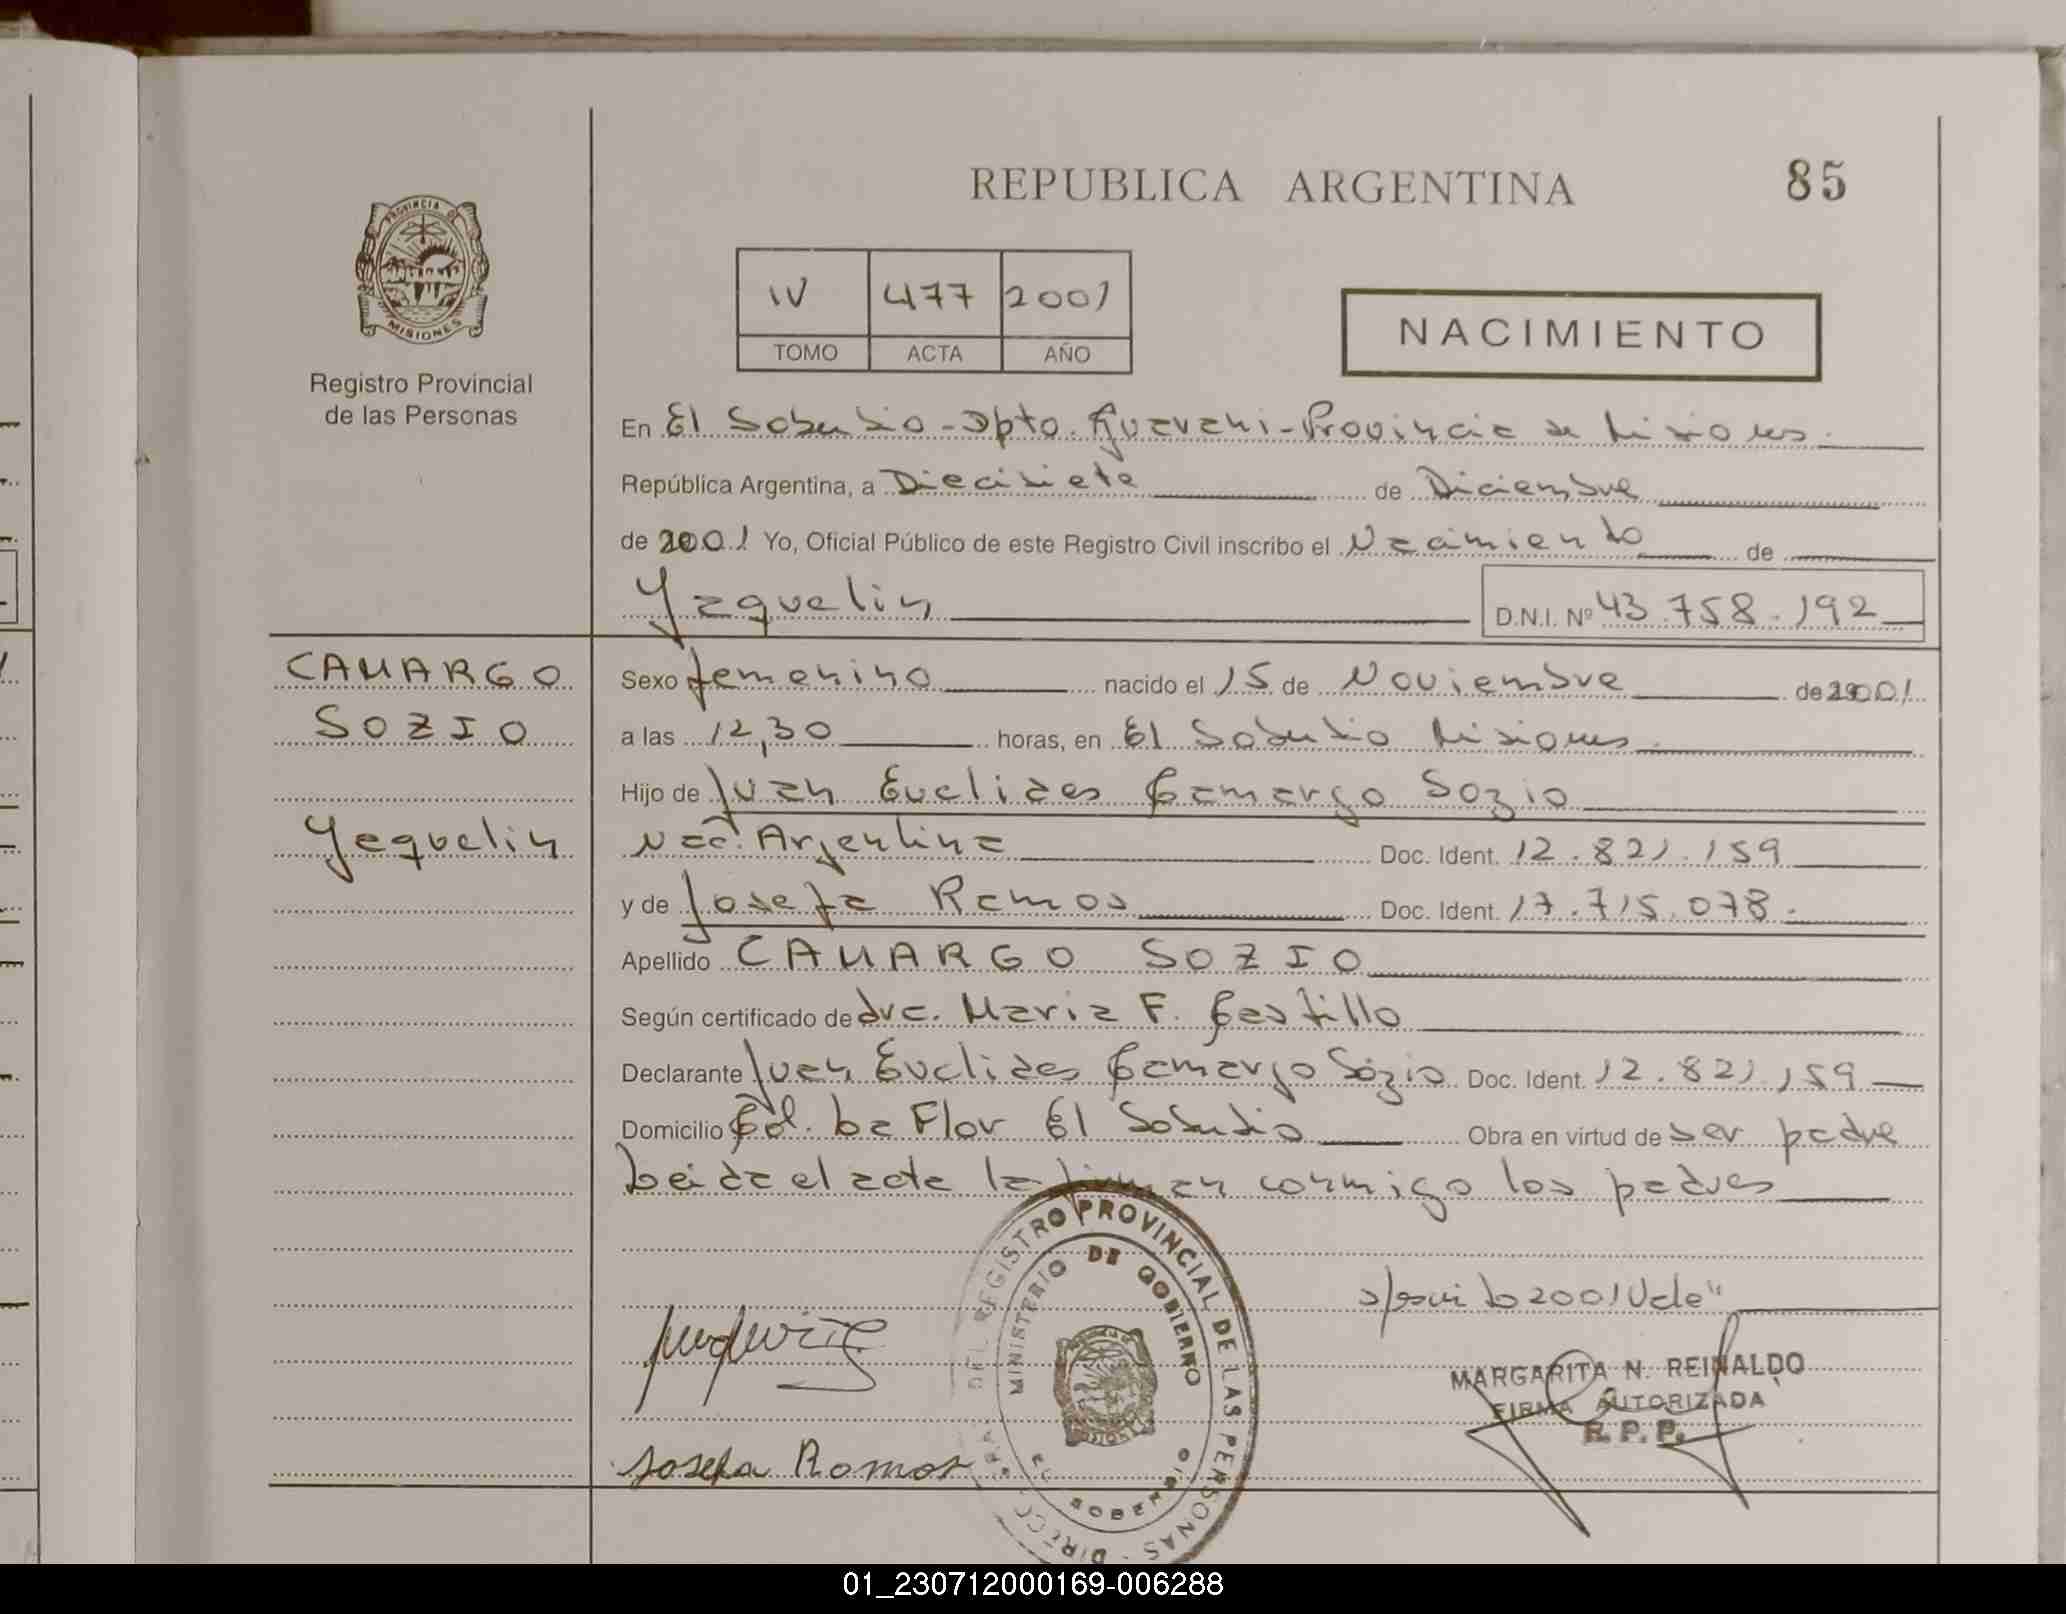 REPUBLICA ARGENTINA
85
PROVINCIA DE
MISIONES
Registro Provincial
de las Personas
IV 477 2001
TOMO ACTA AÑO
NACIMIENTO
En El Soberbio - Dpto. Guarani - Provincia de Misiones.
República Argentina, a Diecisiete de Diciembre
de 2001 Yo, Oficial Público de este Registro Civil inscribo el Nacimiento de
Yaquelin
D.N.I. Nº 43.758.192
CAMARGO
SOZIO
Yaquelin
Sexo femenino nacido el 15 de Noviembre de 2001
a las 12,30 horas, en El Soberbio Misiones.
Hijo de Juan Euclides Camargo Sozio
Nac. Argentina Doc. Ident. 12.821.159
y de Josefa Ramos Doc. Ident. 17.715.078.
Apellido CAMARGO SOZIO
Según certificado de dra. Maria F. Castillo
Declarante Juan Euclides Camargo Sozio Doc. Ident. 12.821.159
Domicilio Col. La Flor El Soberbio Obra en virtud de ser padre
Leida el acta la firman conmigo los padres
2001 Vale"
Josefa Ramos
DIRECC. GRAL. DEL REGISTRO PROVINCIAL DE LAS PERSONAS
MINISTERIO DE GOBIERNO
EL SOBERBIO
MARGARITA N. REINALDO
FIRMA AUTORIZADA
R. P. P.
01_230712000169-006288